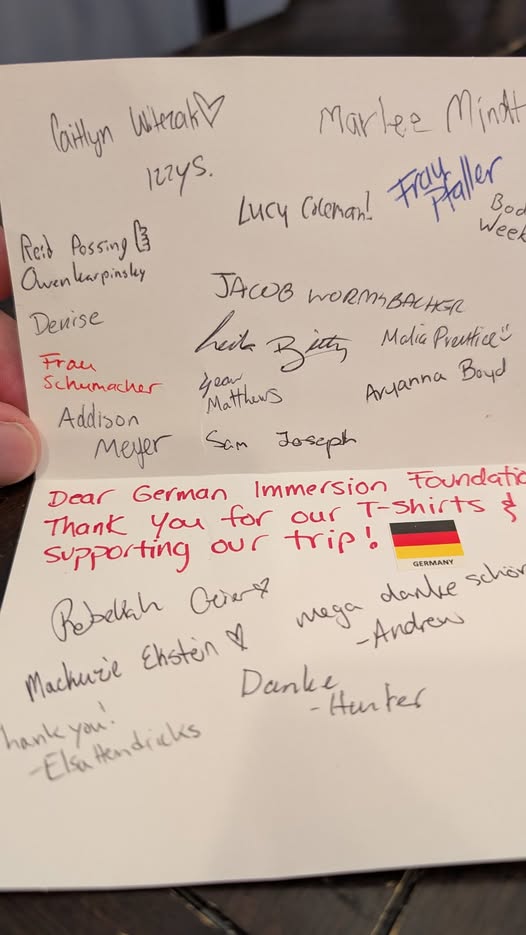 Caitlyn Witezak
Marlee Mindt
Izzy S.
Lucy Coleman!
Frau
Pfaller
Bod
Week
Reid Possing
Owen Karpinsky
JACOB WORMSBACHER
Denise
Malia Prentice
Frau
Schumacher
Sean
Matthews
Aryanna Boyd
Addison
Meyer
Sam Joseph
Dear German Immersion Foundatio
Thank you for our T-shirts &
supporting our trip!
GERMANY
Rebekah Geier
mega danke schön
-Andrew
Mackenzie Ekstein
Danke
-Hunter
hank you!
-Elsa Hendricks